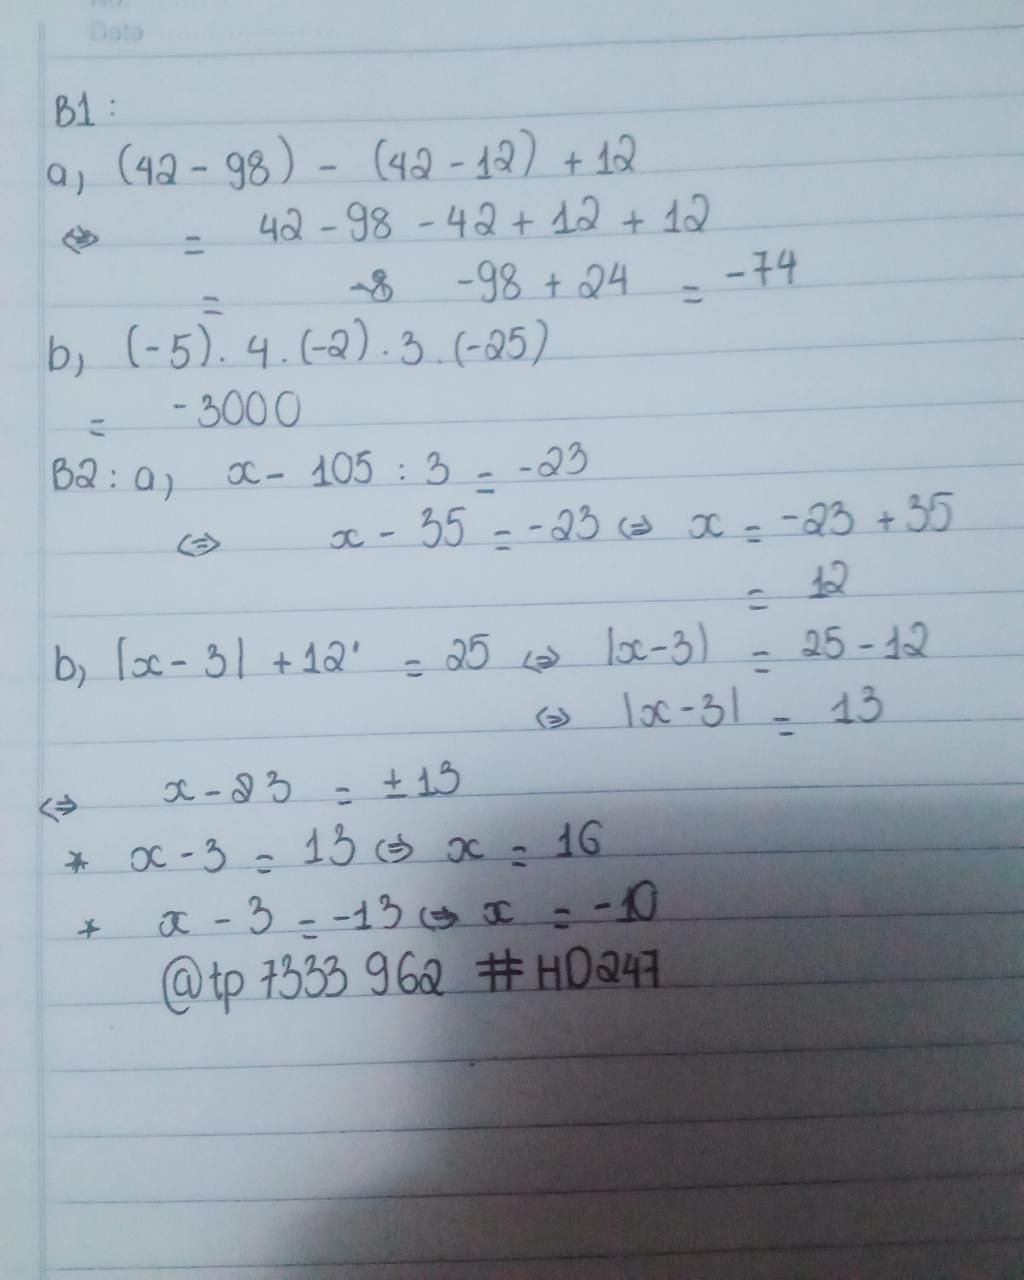 No.
Date
B1 :
a, (42 - 98) - (42 - 12) + 12
⇔ = 42 - 98 - 42 + 12 + 12
= -98 + 24 = -74
b, (-5) . 4 . (-2) . 3 . (-25)
= -3000
B2 : a, x - 105 : 3 = -23
⇔ x - 35 = -23 ⇔ x = -23 + 35
= 12
b, |x - 3| + 12 = 25 ⇔ |x - 3| = 25 - 12
⇔ |x - 3| = 13
⇔ x - 23 = ± 13
* x - 3 = 13 ⇔ x = 16
* x - 3 = -13 ⇔ x = -10
@tp 7333 962 #HD247